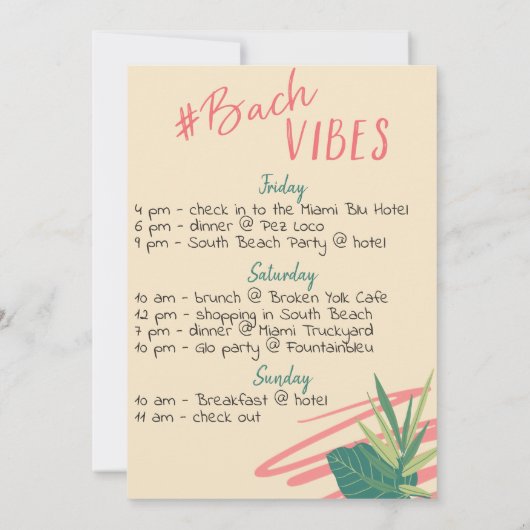 #Bach
VIBES
Friday
4 pm - check in to the Miami Blu Hotel
6 pm - dinner @ Pez Loco
9 pm - South Beach Party @ hotel
Saturday
10 am - brunch @ Broken Yolk Cafe
12 pm - shopping in South Beach
7 pm - dinner @ Miami Truckyard
10 pm - Glo party @ Fountainbleu
Sunday
10 am - Breakfast @ hotel
11 am - check out